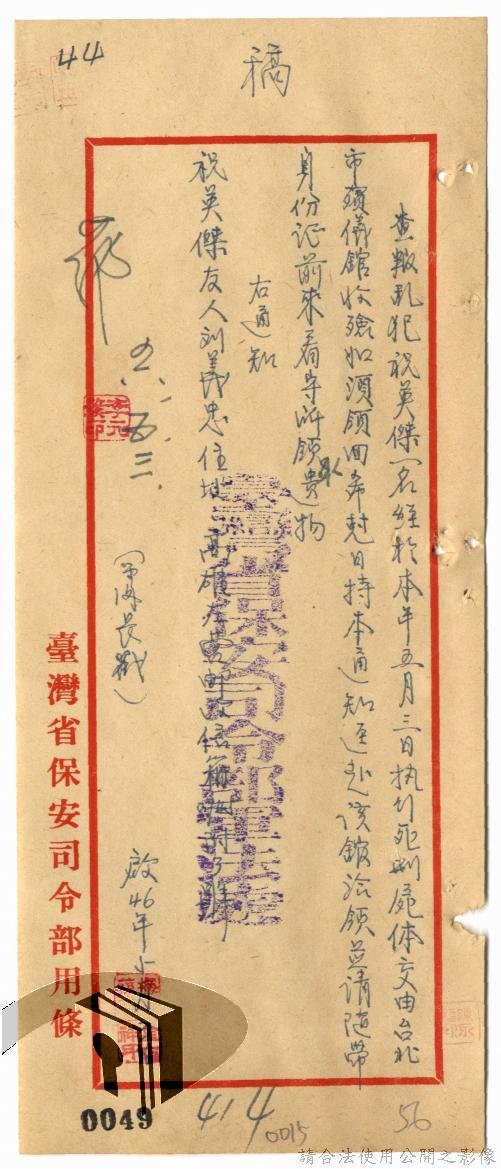 44
稿
查叛乱犯祝英傑一名経於本年五月三日执行死刑屍体交由台北
市殯儀館收殮如須領回希尅日持本通知逕赴该館洽領並请随帶
身份证前來看守所領取遺物
右通知
祝英傑友人刘義忠住址 高雄左营郵政信箱
臺灣省保安司令部軍法處
五、三
啟46年5月
臺灣省保安司令部用條
0049
414
0015
56
請合法使用公開之影像